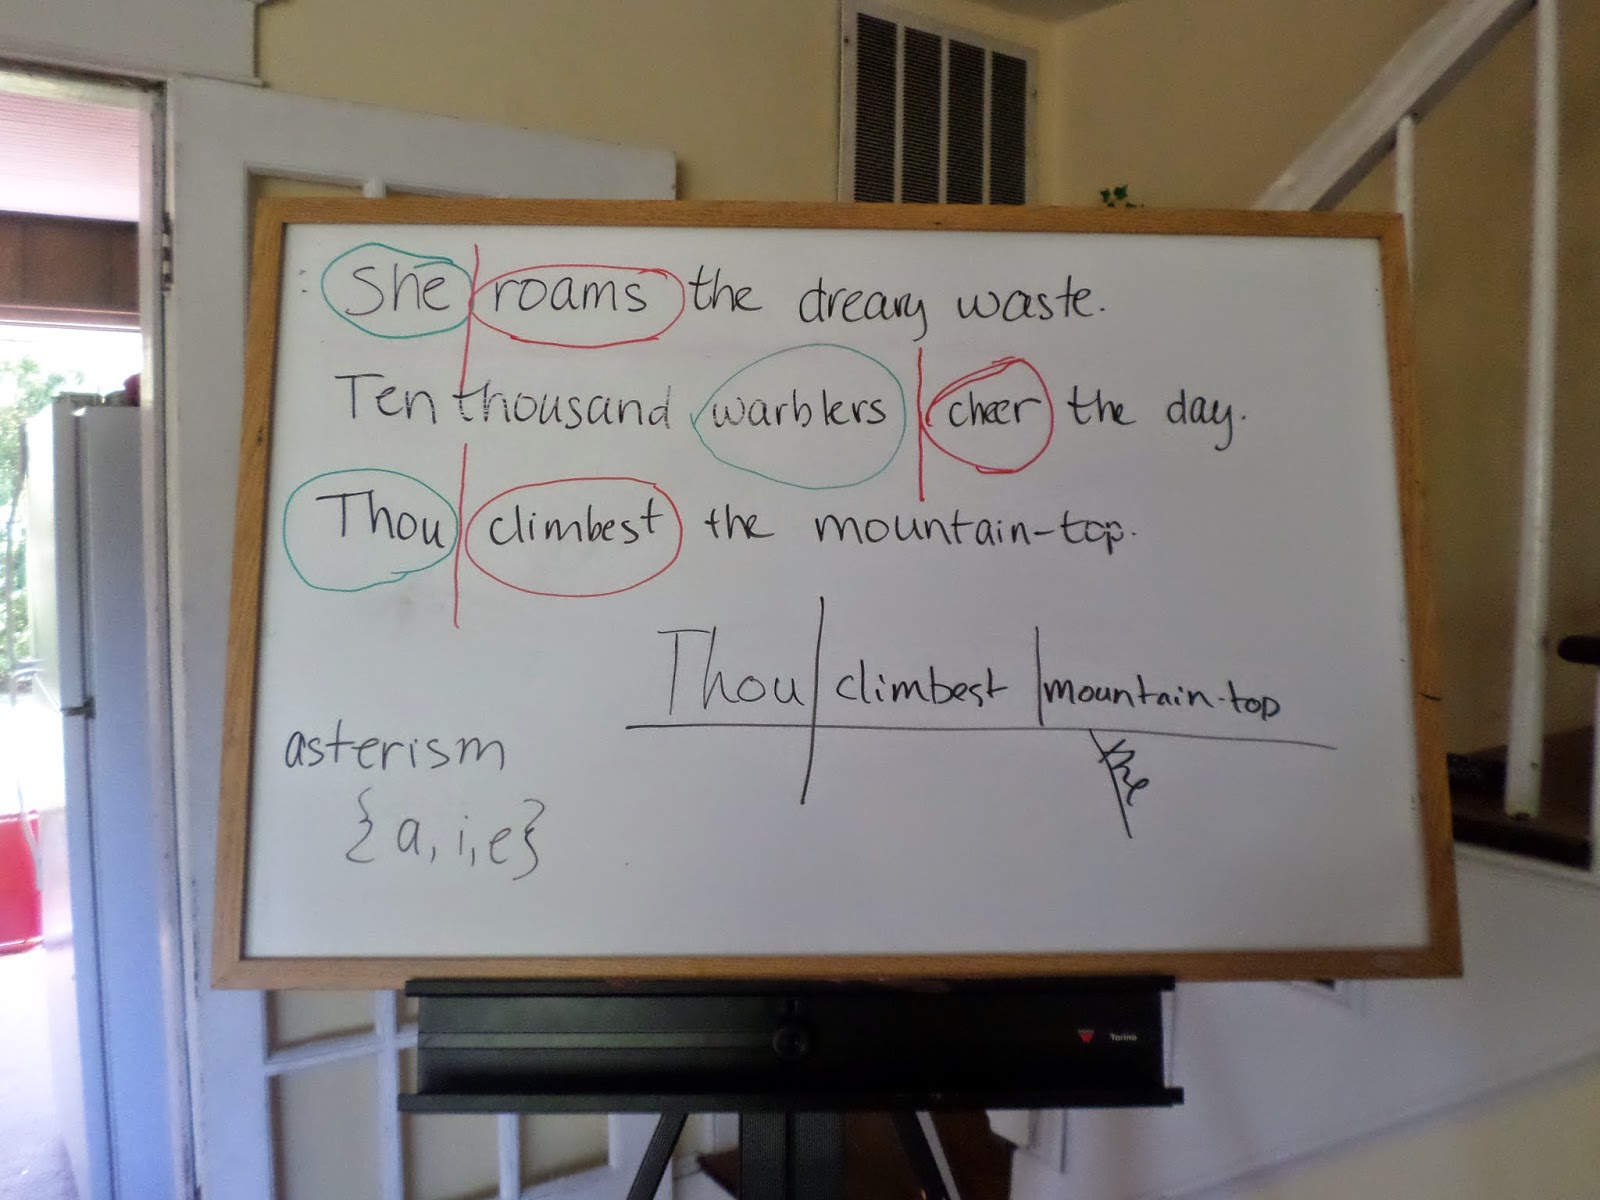 : She roams the dreary waste.
Ten thousand warblers cheer the day.
Thou climbest the mountain-top.
Thou climbest mountain-top
the
asterism
{a, i, e}
Torino